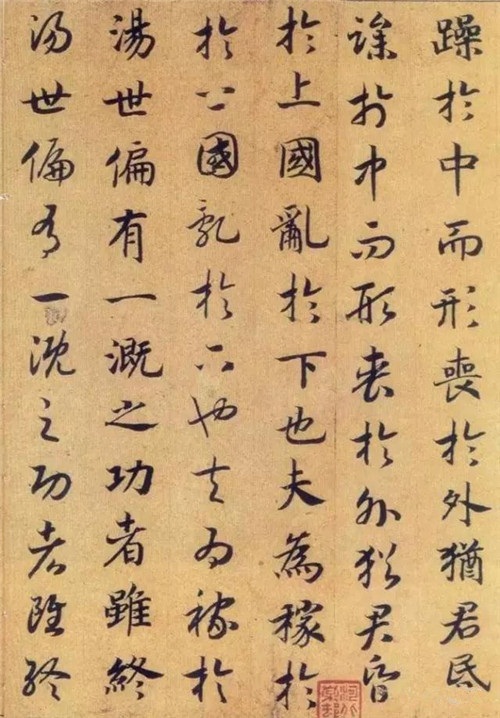 躁於中而形喪於外猶君昬
躁於中而形喪於外猶君昬
於上國亂於下也夫為稼於
於上國亂於下也夫為稼於
湯世偏有一溉之功者雖終
湯世偏有一溉之功者雖終